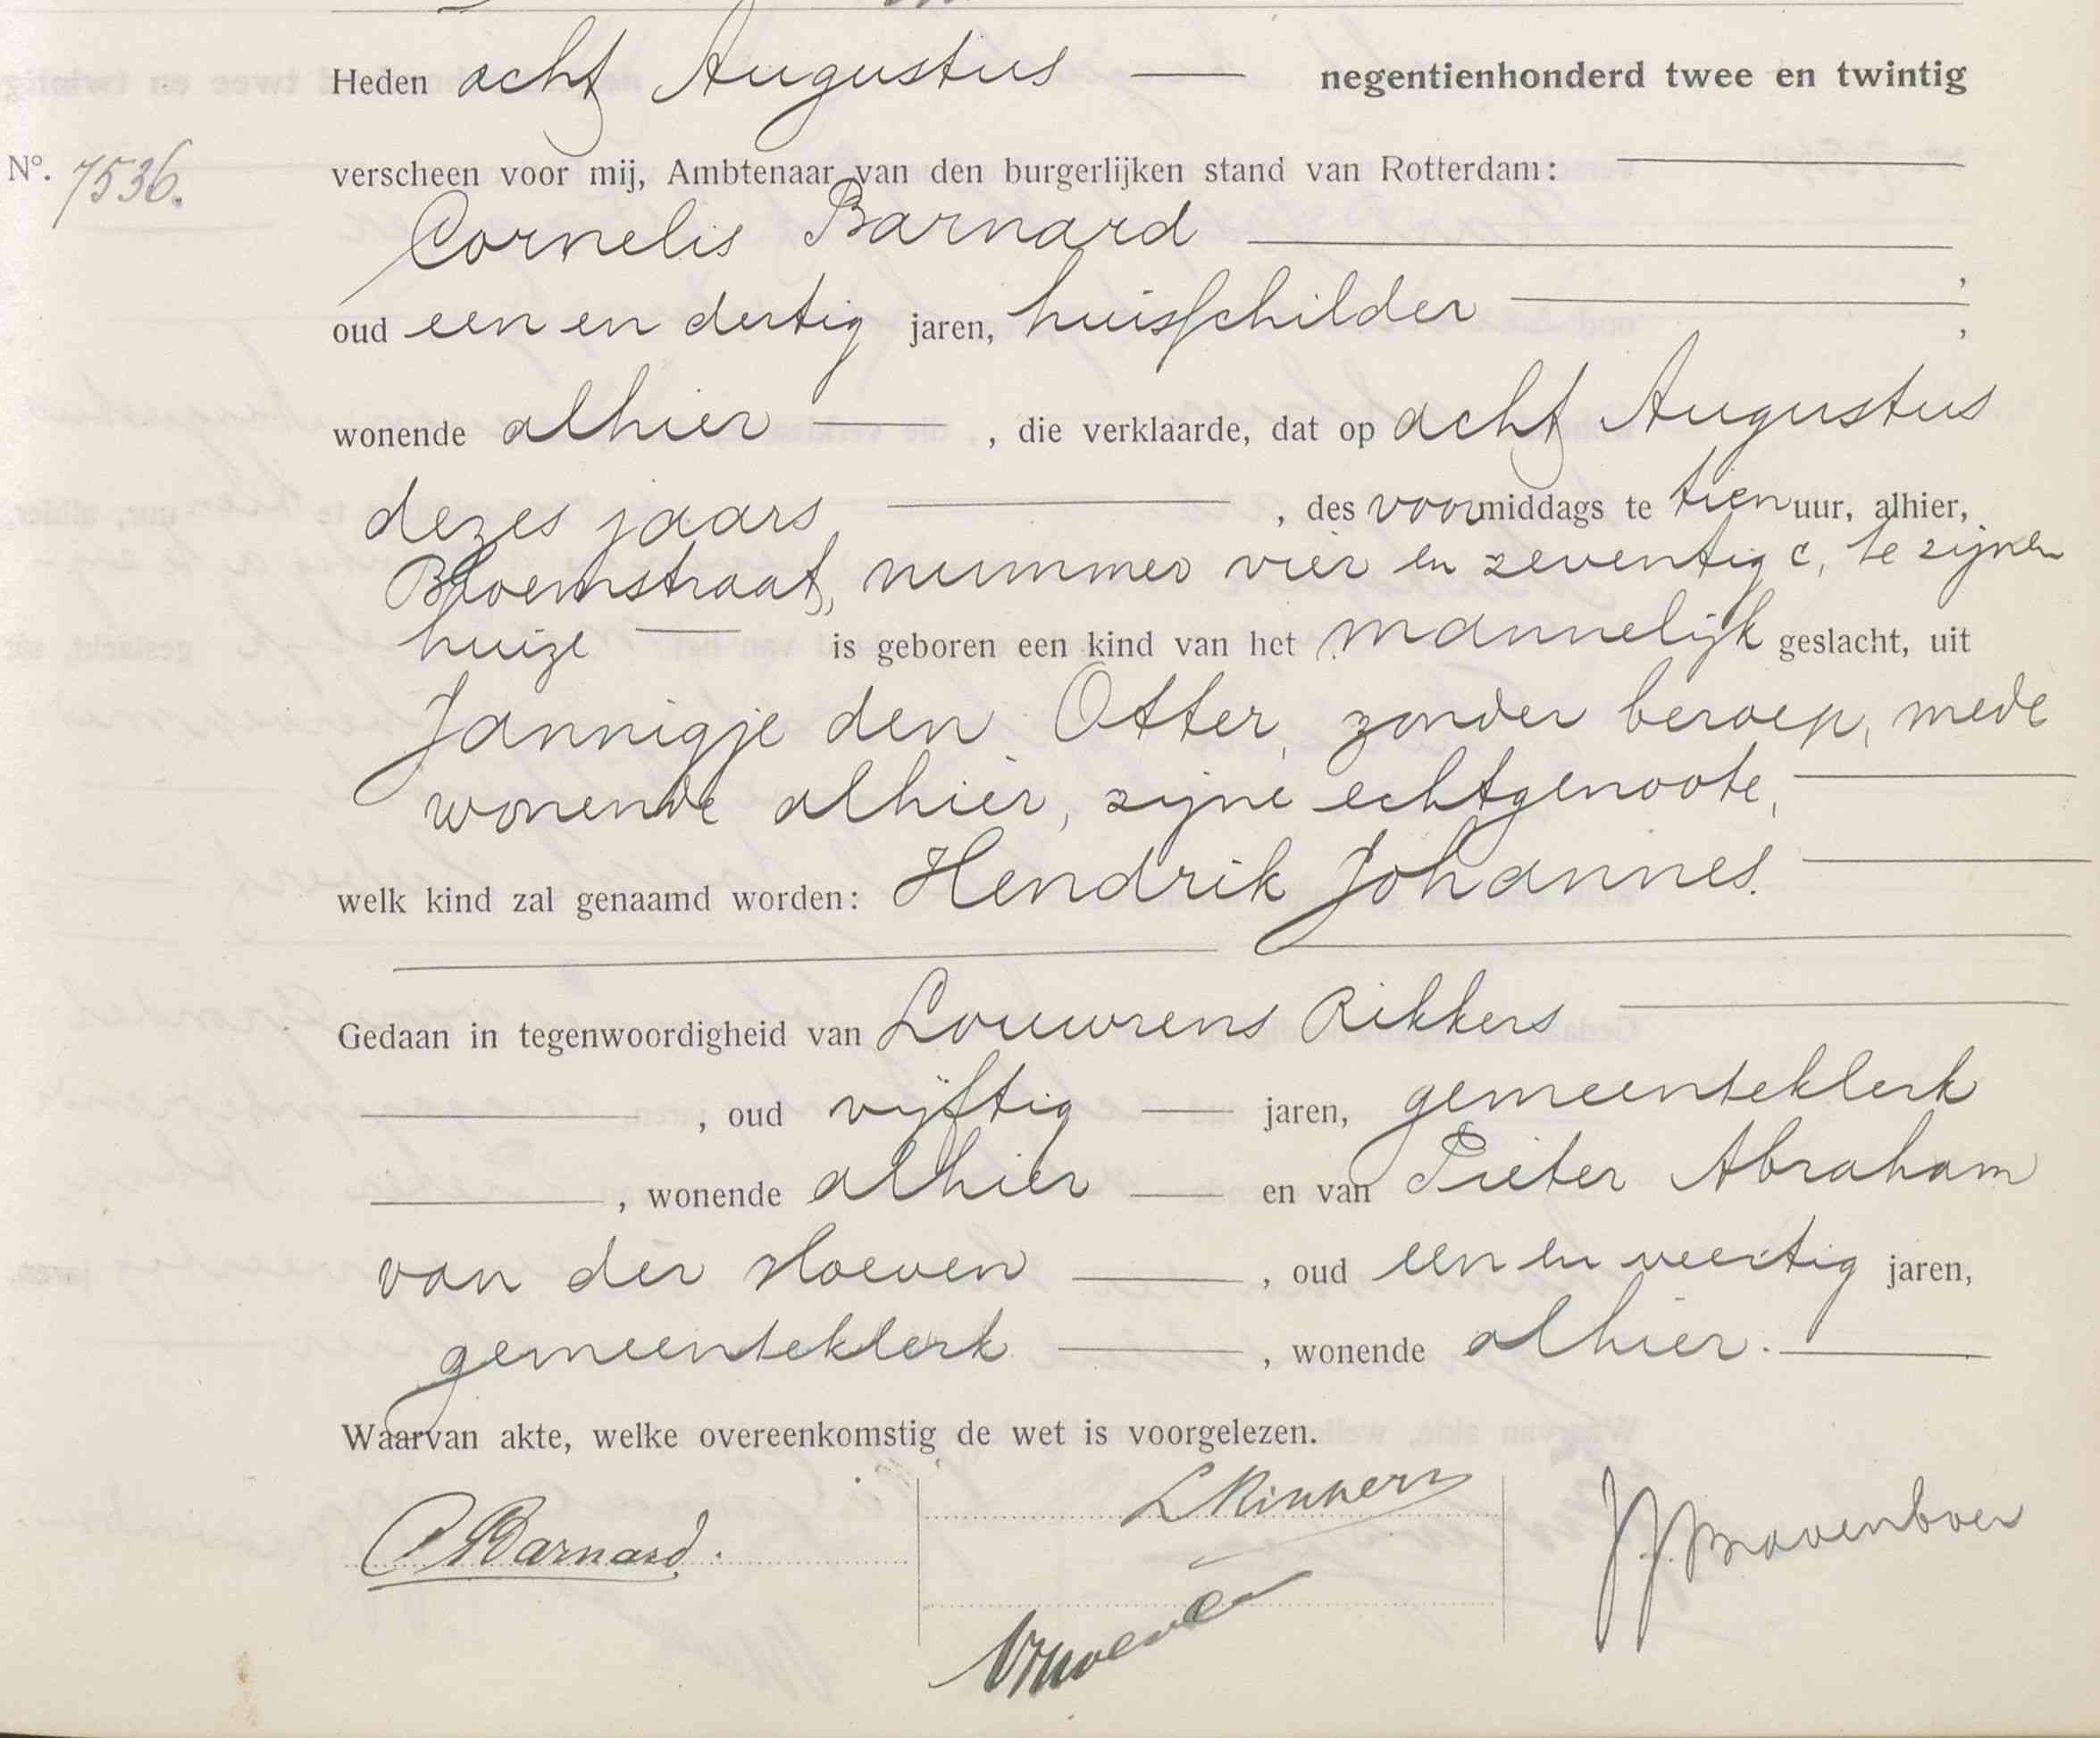 Heden acht Augustus negentienhonderd twee en twintig
Nº. 7536. verscheen voor mij, Ambtenaar van den burgerlijken stand van Rotterdam:
Cornelis Barnard ,
oud een en dertig jaren, huisschilder ,
wonende alhier , die verklaarde, dat op acht Augustus
dezes jaars , des voormiddags te tien uur, alhier,
Bloemstraat, nummer vier en zeventig c, te zijnen
huize is geboren een kind van het mannelijk geslacht, uit
Jannigje den Otter, zonder beroep, mede
wonende alhier, zijne echtgenoote,
welk kind zal genaamd worden: Hendrik Johannes.
Gedaan in tegenwoordigheid van Louwrens Rikkers
, oud vijftig jaren, gemeenteklerk
, wonende alhier en van Pieter Abraham
van der Hoeven , oud een en veertig jaren,
gemeenteklerk , wonende alhier.
Waarvan akte, welke overeenkomstig de wet is voorgelezen.
C Barnard.
L Rikkers